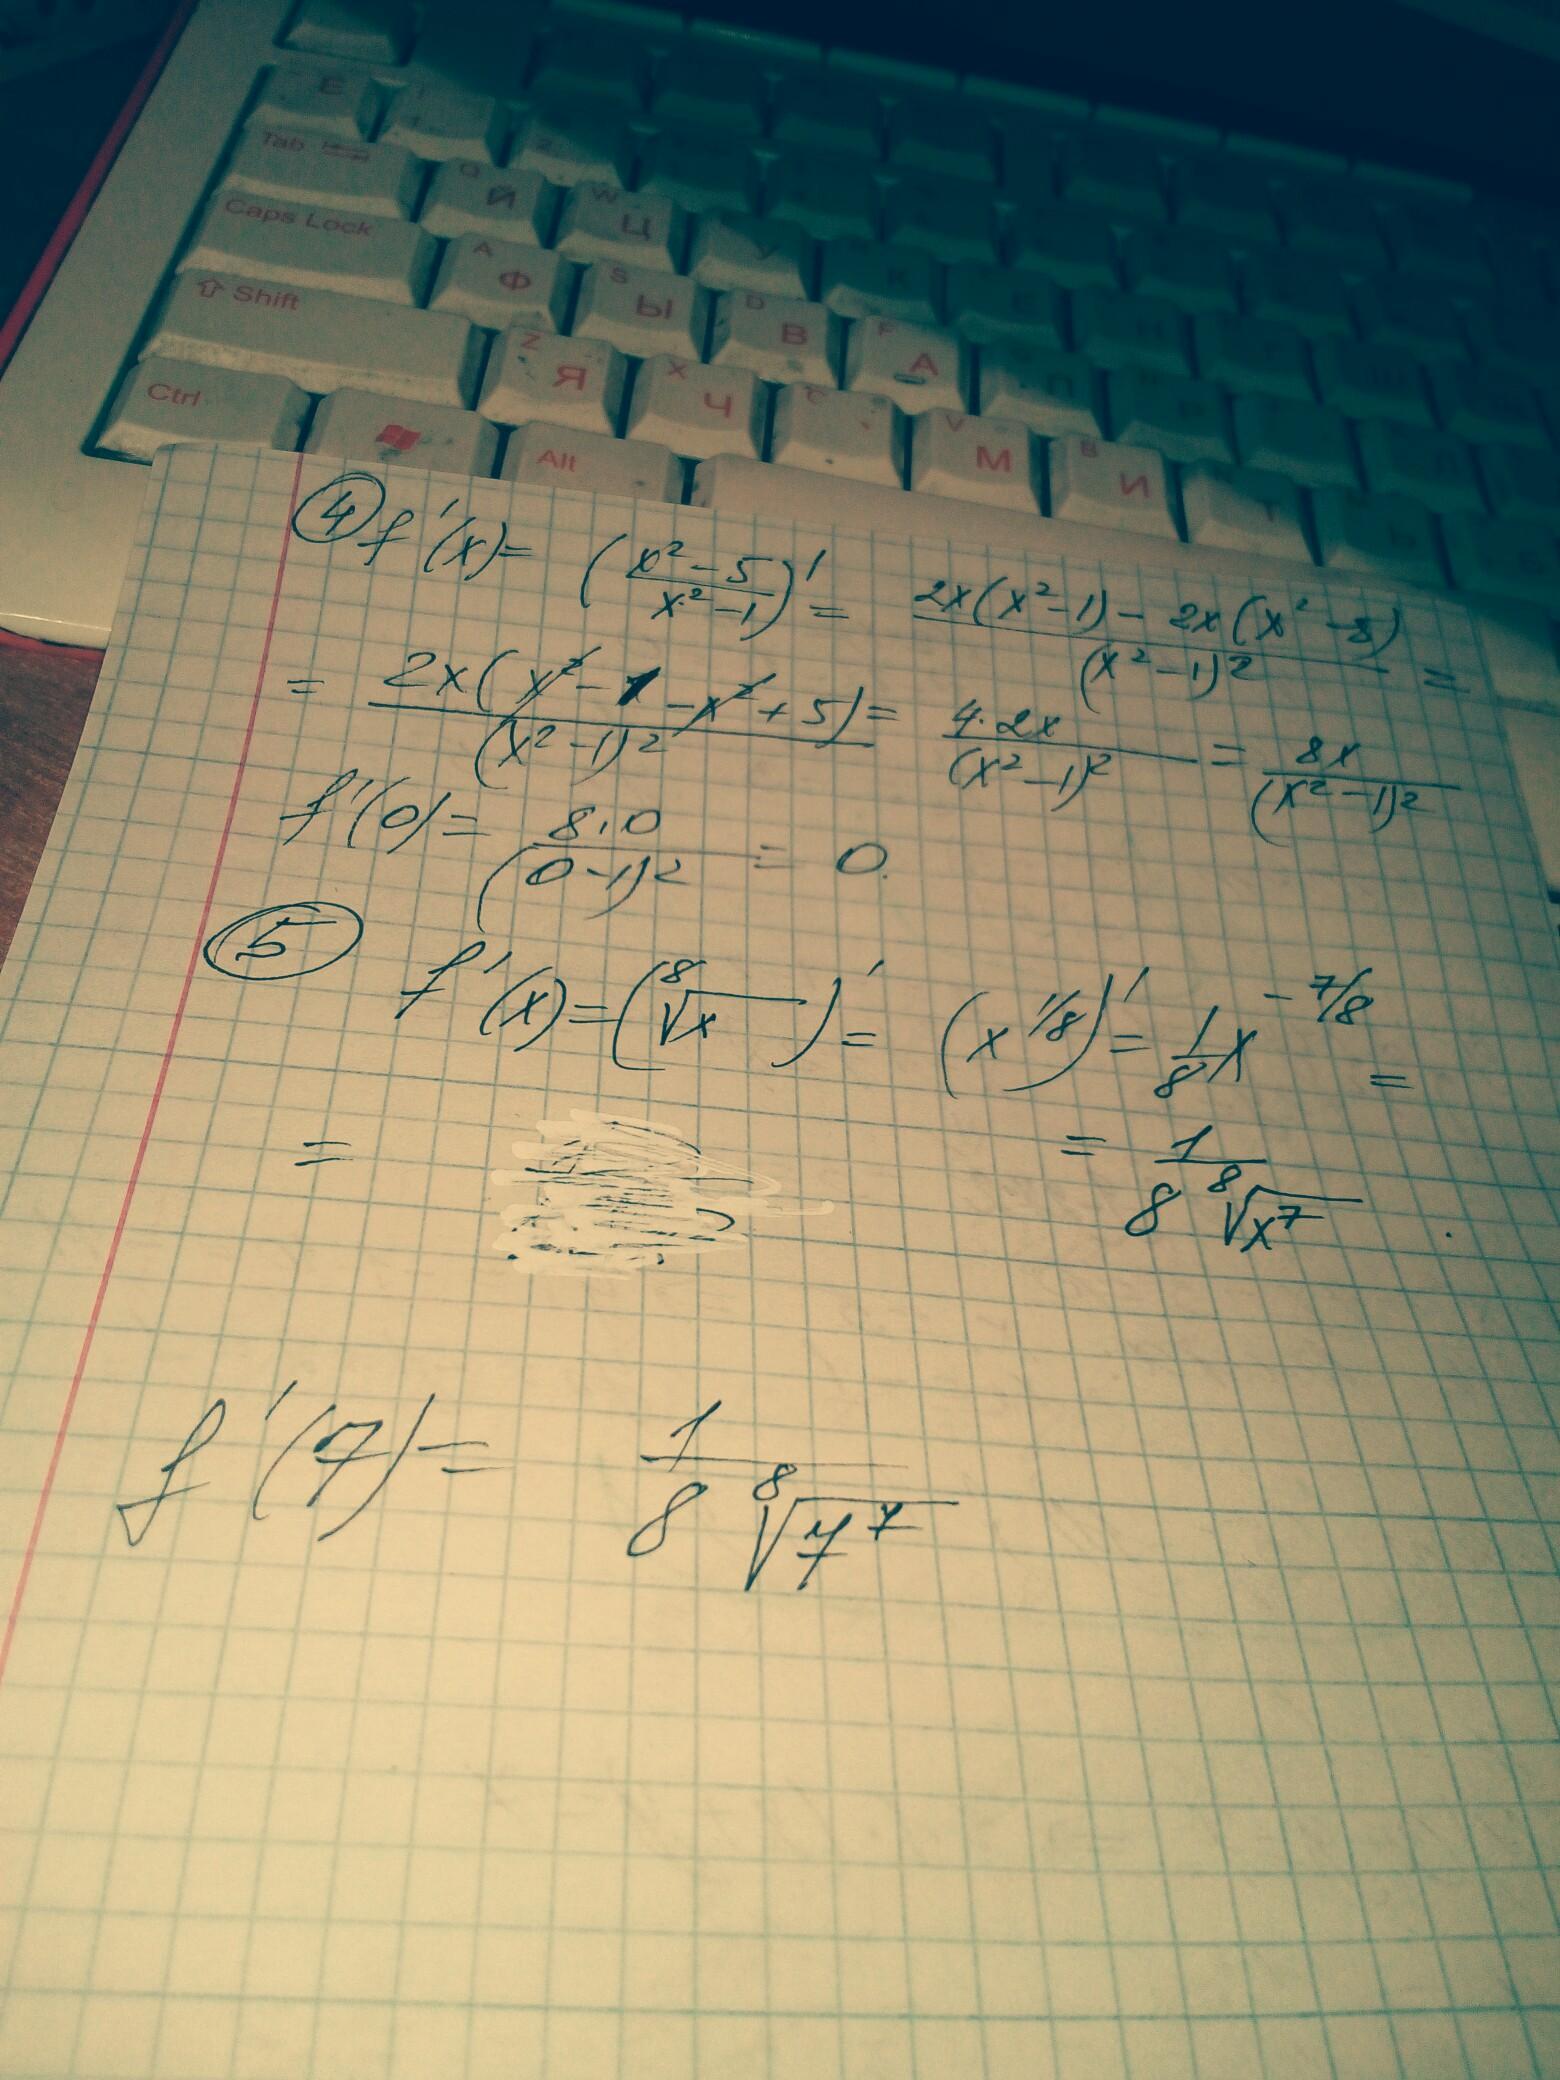 E
Tab
Q Й W Ц У К Е
Caps Lock
A Ф S Ы D В F А П
⇧ Shift
Z Я X Ч С V М B И Т Ь
Ctrl
Alt
④ f'(x) = ((x² - 5)/(x² - 1))' = (2x(x² - 1) - 2x(x² - 5))/(x² - 1)² =
= (2x(x² - 1 - x² + 5))/(x² - 1)² = (4·2x)/(x² - 1)² = 8x/(x² - 1)²
f'(0) = (8·0)/(0 - 1)² = 0.
⑤ f'(x) = (⁸√x)' = (x^1/8)' = 1/8 x^-7/8 =
= = 1/(8 ⁸√x⁷) .
f'(7) = 1/(8 ⁸√7⁷)